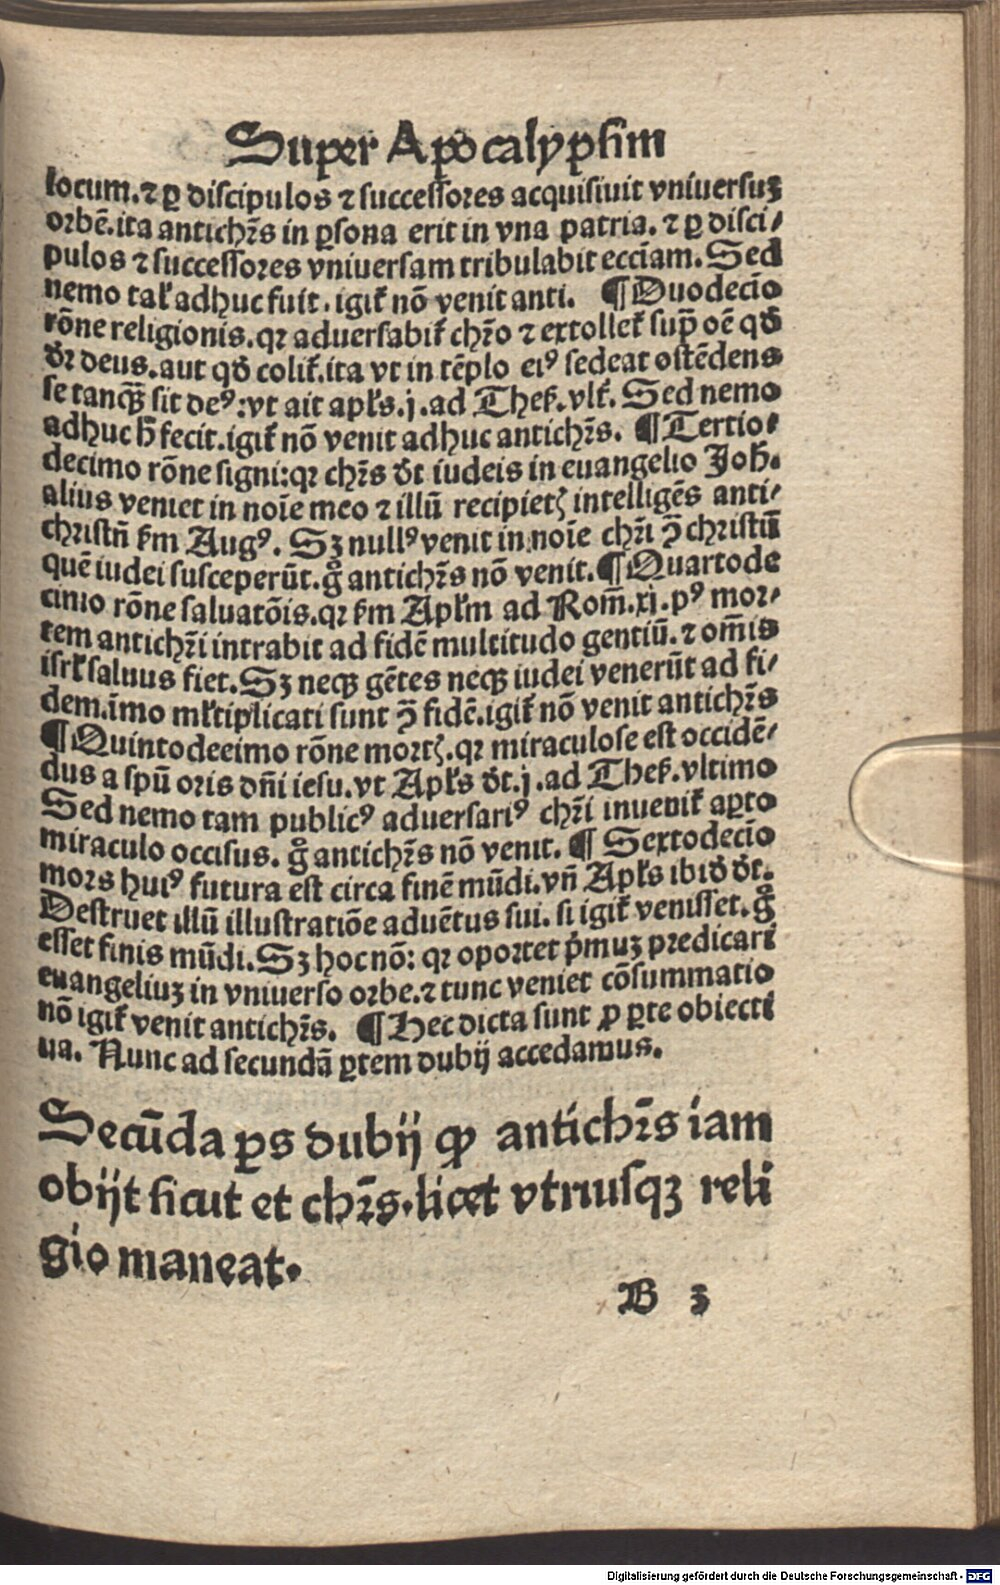 Super Apocalypsim
locum. ⁊ ꝑ discipulos ⁊ successores acquisiuit vniuersuꝫ
orbē. ita antichr̄s in ꝑsona erit in vna patria. ⁊ ꝑ disci/
pulos ⁊ successores vniuersam tribulabit ecciam. Sed
nemo tał adhuc fuit. igit̄ nō venit anti. ¶ Duodecīo
rōne religionis. qꝛ aduersabit̄ chr̄o ⁊ extollet̄ sup̄ oē qđ
dr̄ deus. aut qđ colit̄. ita vt in tēplo eiꝰ sedeat ostēdens
se tanqꝫ̄ sit deꝰ: vt ait apłs. j. ad Thes̄. vlt̄. Sed nemo
adhuc h̄ fecit. igit̄ nō venit adhuc antichr̄s. ¶ Tertio/
decimo rōne signi: qꝛ chr̄s dt̄ iudeis in euangelio Joh̄.
alius veniet in noīe meo ⁊ illū recipietꝭ intelligēs anti/
christū s̄m Augꝰ. Sꝫ nullꝰ venit in noīe chr̄i ꝯ̄ christū
quē iudei susceperūt. g̊ antichr̄s nō venit. ¶ Quartode
cimo rōne saluatōis. qꝛ s̄m Apłm ad Rom̄. xj. pꝰ mor/
tem antichr̄i intrabit ad fidē multitudo gentiū. ⁊ om̄is
isrł saluus fiet. Sꝫ neqꝫ gētes neqꝫ iudei venerūt ad fi/
dem. īmo młtiplicati sunt ꝯ̄ fidē. igit̄ nō venit antichr̄s
¶ Quintodecimo rōne mortꝭ. qꝛ miraculose est occidē/
dus a spū oris dn̄i iesu. vt Apłs dt̄. j. ad Thes̄. vltimo
Sed nemo tam publicꝰ aduersariꝰ chr̄i inuenit̄ aꝑto
miraculo occisus. g̊ antichr̄s nō venit. ¶ Sextodecīo
mors huiꝰ futura est circa finē mūdi. vn̄ Apłs ibid̄ dt̄.
Destruet illū illustratiōe aduētus sui. si igit̄ venisset. g̊
esset finis mūdi. Sꝫ hoc nō: qꝛ oportet p̄muꝫ predicari
euangeliuꝫ in vniuerso orbe. ⁊ tunc veniet cōsummatio
nō igit̄ venit antichr̄s. ¶ Hec dicta sunt ꝓ ꝑte obiecti
ua. Nunc ad secundā ꝑtem dubij accedamus.
Secūda ꝑs dubij ꝙ antichr̄s iam
obijt sicut et chr̄s. licet vtriusqꝫ reli
gio maneat.
B 3
Digitalisierung gefördert durch die Deutsche Forschungsgemeinschaft - DFG